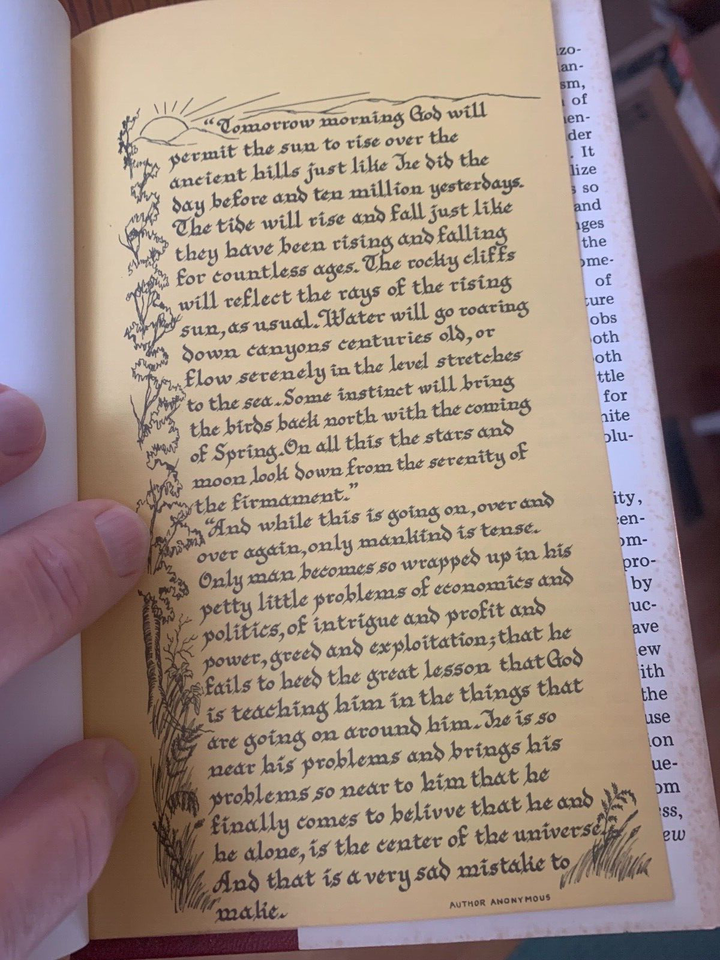 “Tomorrow morning God will
permit the sun to rise over the
ancient hills just like He did the
day before and ten million yesterdays.
The tide will rise and fall just like
they have been rising and falling
for countless ages. The rocky cliffs
will reflect the rays of the rising
sun, as usual. Water will go roaring
down canyons centuries old, or
flow serenely in the level stretches
to the sea. Some instinct will bring
the birds back north with the coming
of Spring. On all this the stars and
moon look down from the serenity of
the firmament.”
“And while this is going on, over and
over again, only mankind is tense.
Only man becomes so wrapped up in his
petty little problems of economics and
politics, of intrigue and profit and
power, greed and exploitation; that he
fails to heed the great lesson that God
is teaching him in the things that
are going on around him. He is so
near his problems and brings his
problems so near to him that he
finally comes to belivve that he and
he alone, is the center of the universe.
And that is a very sad mistake to
make.
AUTHOR ANONYMOUS
zo-
an-
sm,
of
en-
der
. It
lize
so
and
nges
the
ome-
of
ture
obs
oth
oth
ttle
for
nite
olu-
ity,
cen-
om-
pro-
by
uc-
ave
ew
ith
the
use
ion
ue-
om
ss,
ew